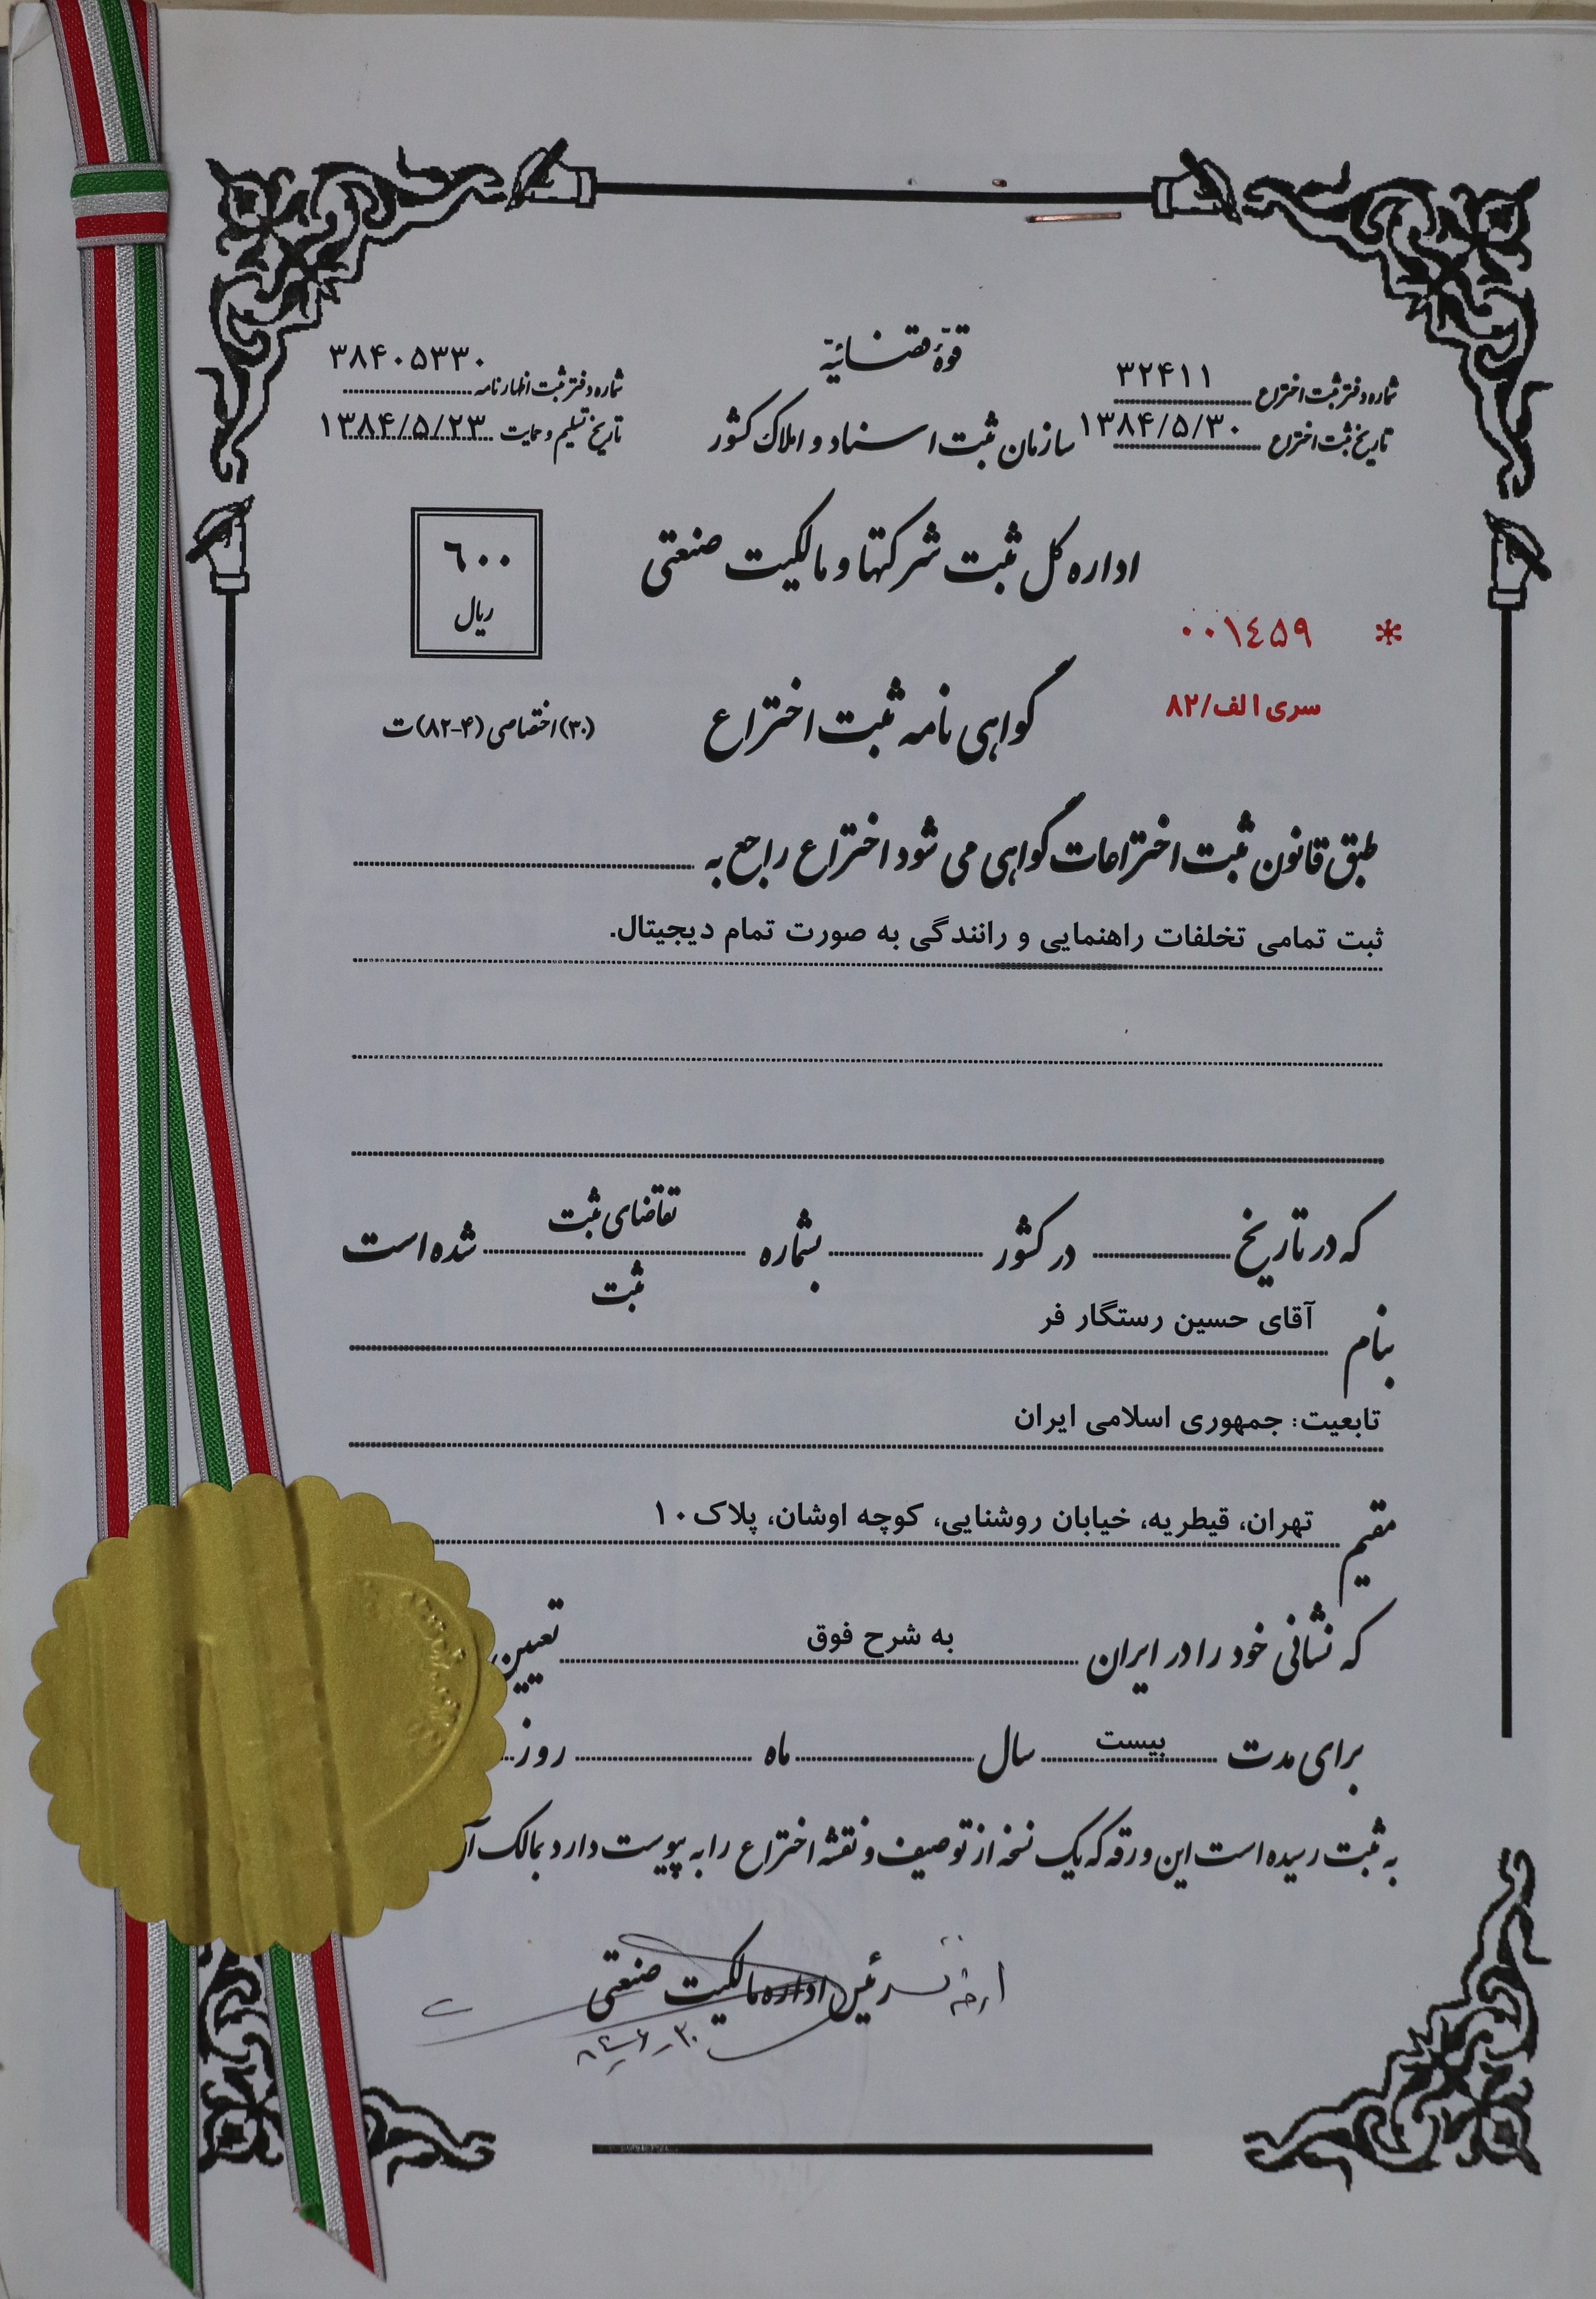 قوّهٔ قضائیّه
شماره دفتر ثبت اختراع ۳۲۴۱۱
شماره دفتر ثبت اظهارنامه ۳۸۴۰۵۳۳۰
سازمان ثبت اسناد و املاک کشور
تاریخ ثبت اختراع ۱۳۸۴/۵/۳۰
تاریخ تسلیم و حمایت ۱۳۸۴/۵/۲۳
اداره کل ثبت شرکتها و مالکیت صنعتی
۶۰۰
ریال
* ۰۰۱۴۵۹
سری الف/۸۲
گواهی نامه ثبت اختراع
(۳۰) اختصاصی (۴-۸۲) ت
طبق قانون ثبت اختراعات گواهی می شود اختراع راجع به
ثبت تمامی تخلفات راهنمایی و رانندگی به صورت تمام دیجیتال.
که در تاریخ در کشور بشماره تقاضای ثبت شده است
ثبت
بنام آقای حسین رستگار فر
تابعیت: جمهوری اسلامی ایران
مقیم تهران، قیطریه، خیابان روشنایی، کوچه اوشان، پلاک ۱۰
که نشانی خود را در ایران به شرح فوق تعیین
برای مدت بیست سال ماه روز
به ثبت رسیده است این ورقه که یک نسخه از توصیف و نقشه اختراع را به پیوست دارد بمالک
رئیس اداره مالکیت صنعتی